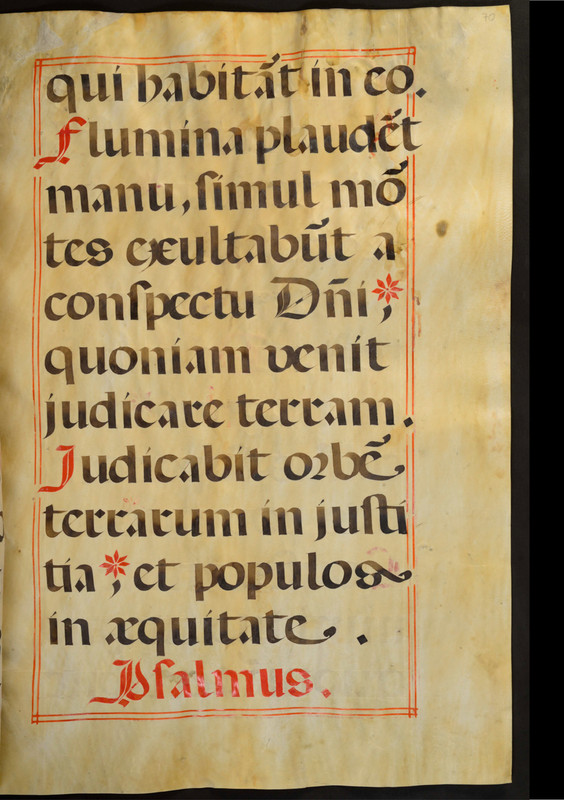 70
qui habitāt in eo.
Flumina plaudēt
manu, ſimul mō
tes exultabūt a
conſpectu Dñi*,
quoniam venit
judicare terram.
Judicabit orbē
terrarum in juſti
tia*, et populos
in æquitate.
Pſalmus.